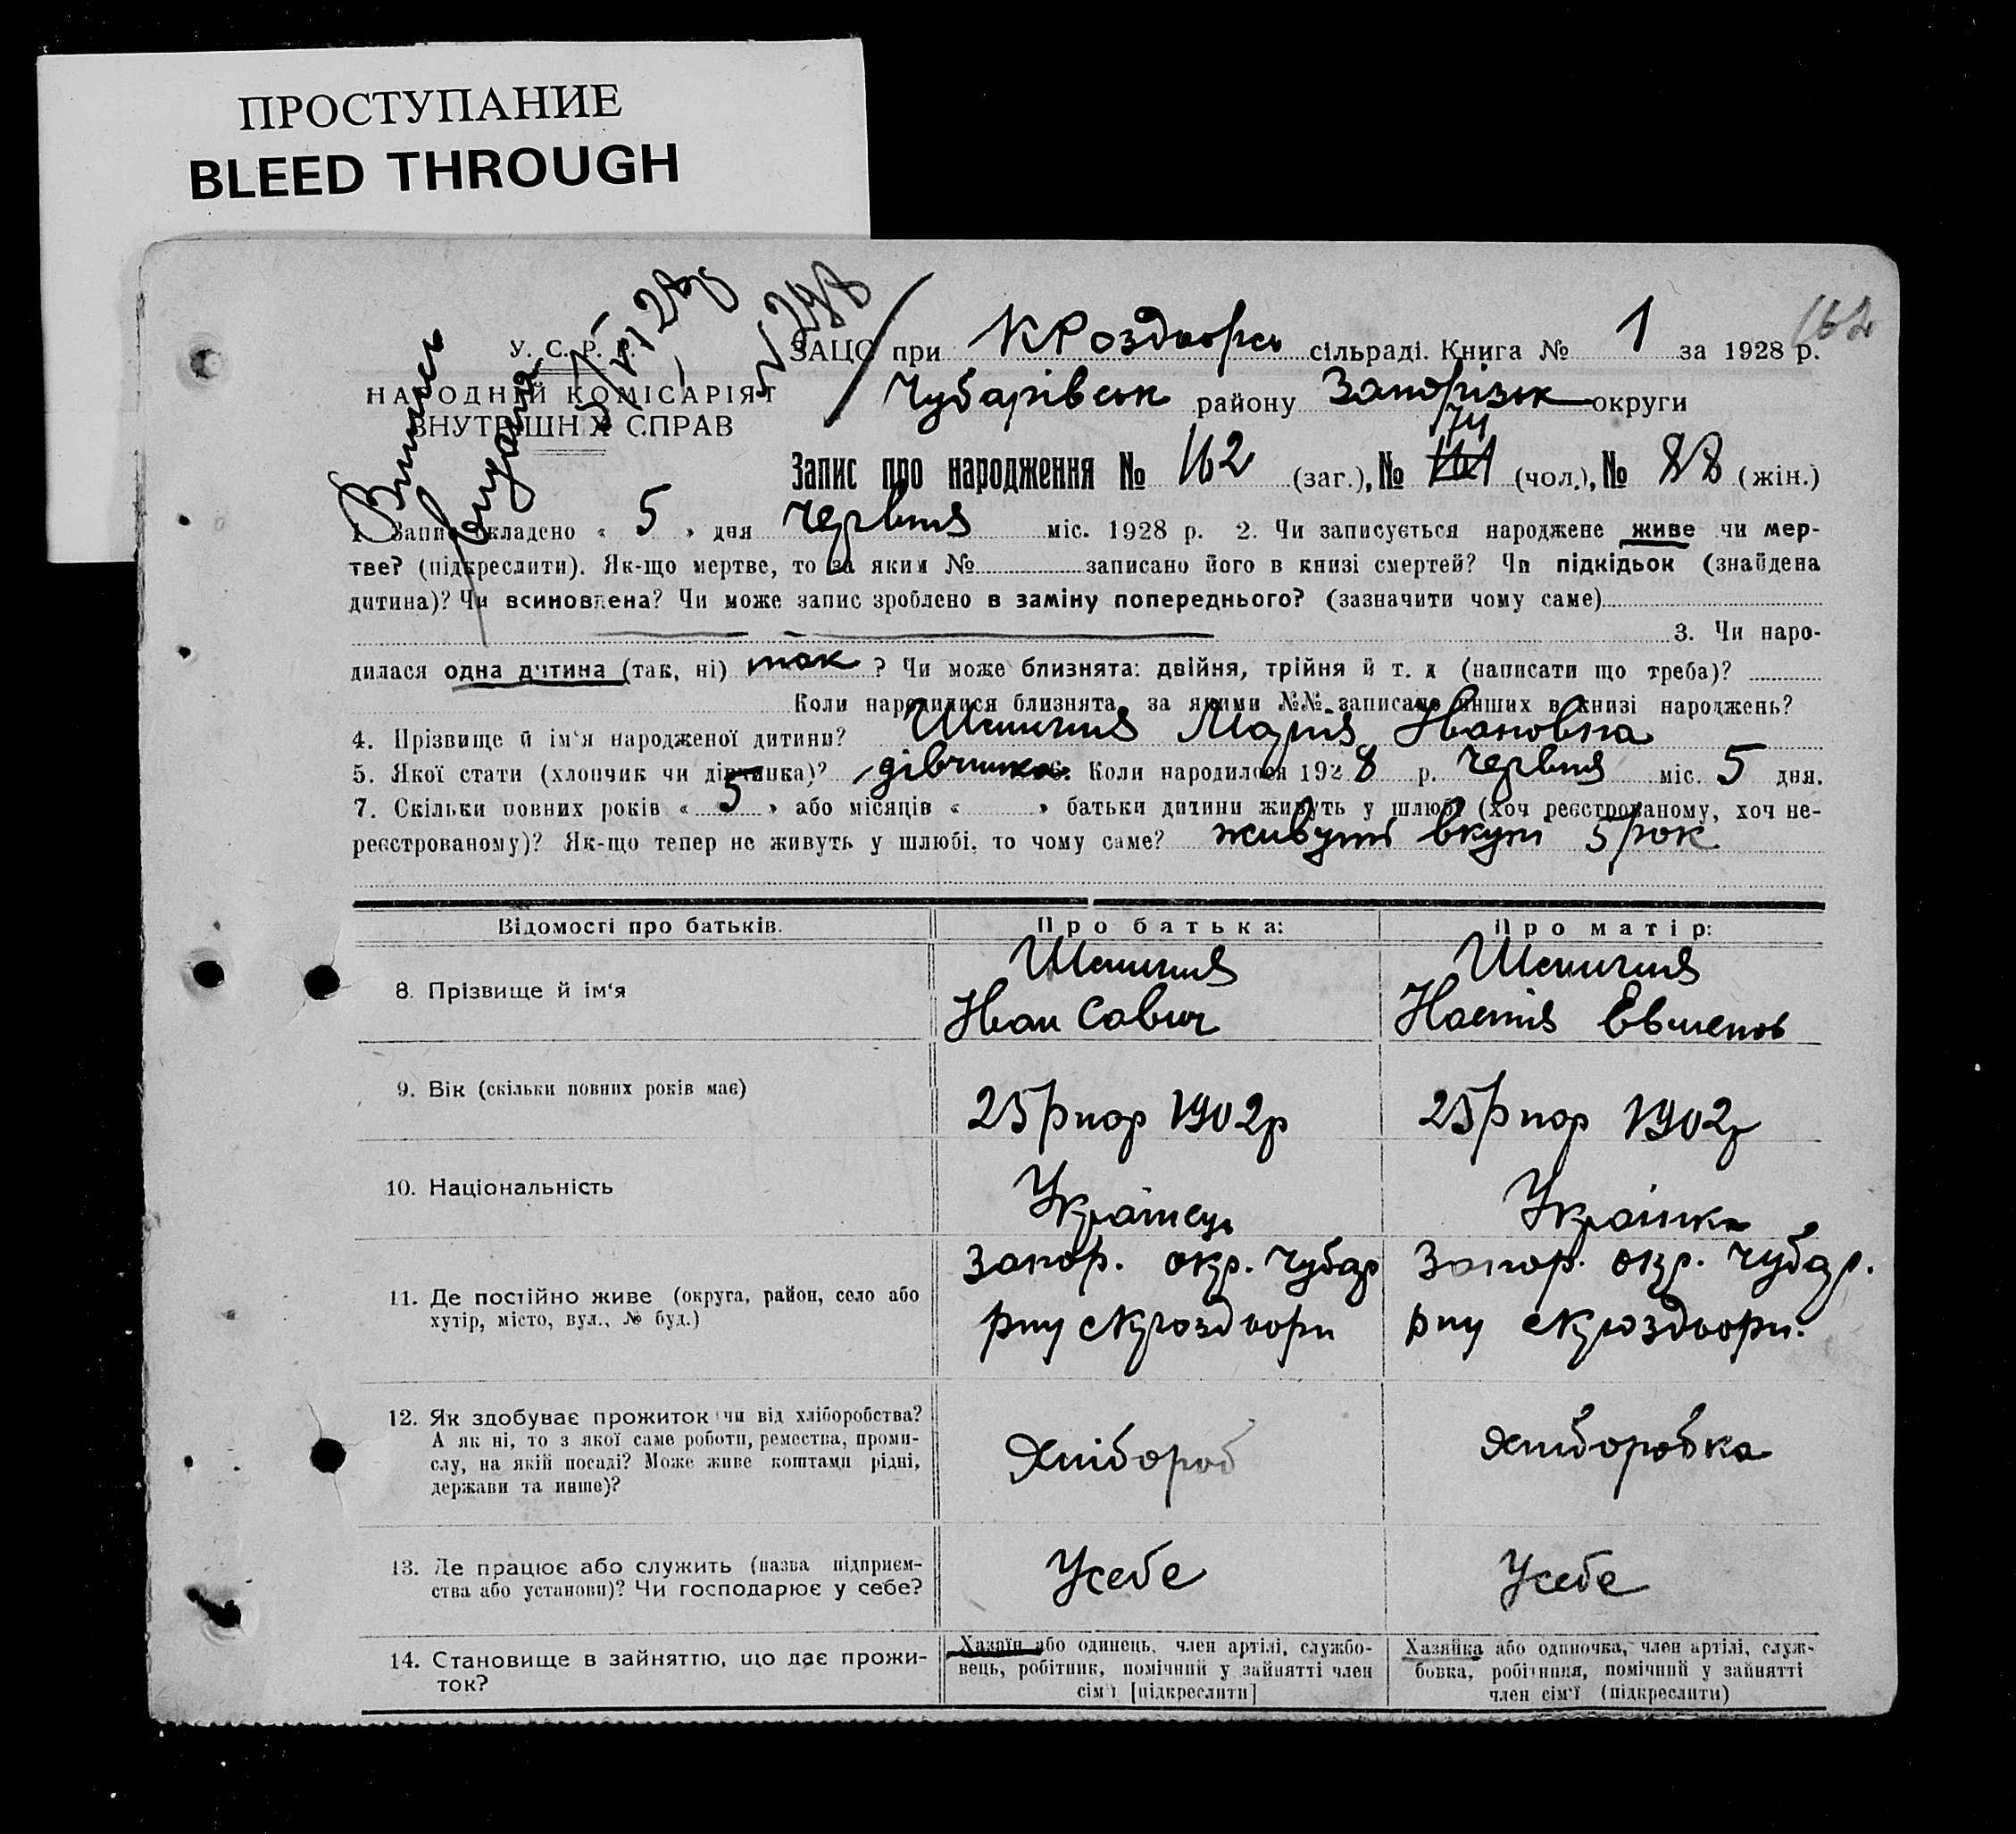 ПРОСТУПАНИЕ
BLEED THROUGH
162
У. С. Р. Р.
НАРОДНІЙ КОМІСАРІЯТ
ВНУТРІШНІХ СПРАВ
Випись
№ 298
ЗАЦС при К Роздорсь сільраді. Книга № 1 за 1928 р.
Чубарівськ району Запорізьк округи
74
Запис про народження № 162 (заг.), № 161 (чол.), № 88 (жін.)
1. Запис складено « 5 » дня червня міс. 1928 р. 2. Чи записується народжене живе чи мер-
тве? (підкреслити). Як-що мертве, то за яким № записано його в книзі смертей? Чи підкідьок (знайдена
дитина)? Чи всиновлена? Чи може запис зроблено в заміну попереднього? (зазначити чому саме)
3. Чи наро-
дилася одна дитина (так, ні) так ? Чи може близнята: двійня, трійня й т. д (написати що треба)?
Коли народилися близнята, за якими №№ записано инших в книзі народжень?
4. Прізвище й ім'я народженої дитини? Марія Івановна
5. Якої стати (хлопчик чи дівчинка)? дівчинка 6. Коли народилося 1928 р. червня міс. 5 дня.
7. Скільки повних років « 5 » або місяців « » батьки дитини живуть у шлюбі (хоч реєстрованому, хоч не-
реєстрованому)? Як-що тепер не живуть у шлюбі, то чому саме? живуть вкупі 5 рок
Відомості про батьків. Про батька: Про матір:
8. Прізвище й ім'я
Іван Савич Настія Евменов
9. Вік (скільки повних років має) 25 р нор 1902р 25 р нор 1902р
10. Національність Українець Українка
11. Де постійно живе (округа, район, село або Запор. окр. Чубар Запор. окр. Чубар.
хутір, місто, вул., № буд.) рну с Кроздори рну с Кроздори.
12. Як здобуває прожиток чи від хліборобства?
А як ні, то з якої саме роботи, ремества, проми-
слу, на якій посаді? Може живе коштами рідні,
держави та инше)? Хлібороб Хліборобка
13. Де працює або служить (назва підприєм-
ства або установи)? Чи господарює у себе? Усебе Усебе
14. Становище в зайняттю, що дає прожи-
ток?
Хазяїн або одинець, член артілі, службо-
вець, робітник, помічний у зайнятті член
сім'ї [підкреслити]
Хазяйка або одиночка, член артілі, служ-
бовка, робітниця, помічний у зайнятті
член сім'ї (підкреслити)